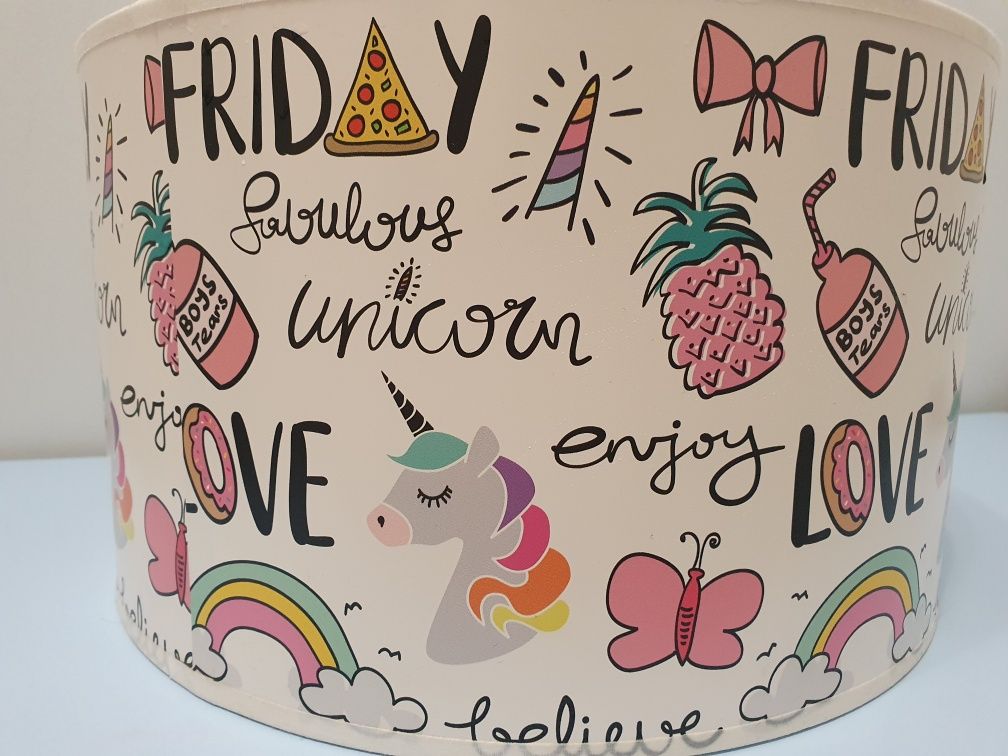 FRIDAY
FRIDA
fabulous
fabulous
unicorn
uni
corn
BOYS
Tears
BOYS
Tears
enjo
LOVE
enjoy
LOVE
believe
believe